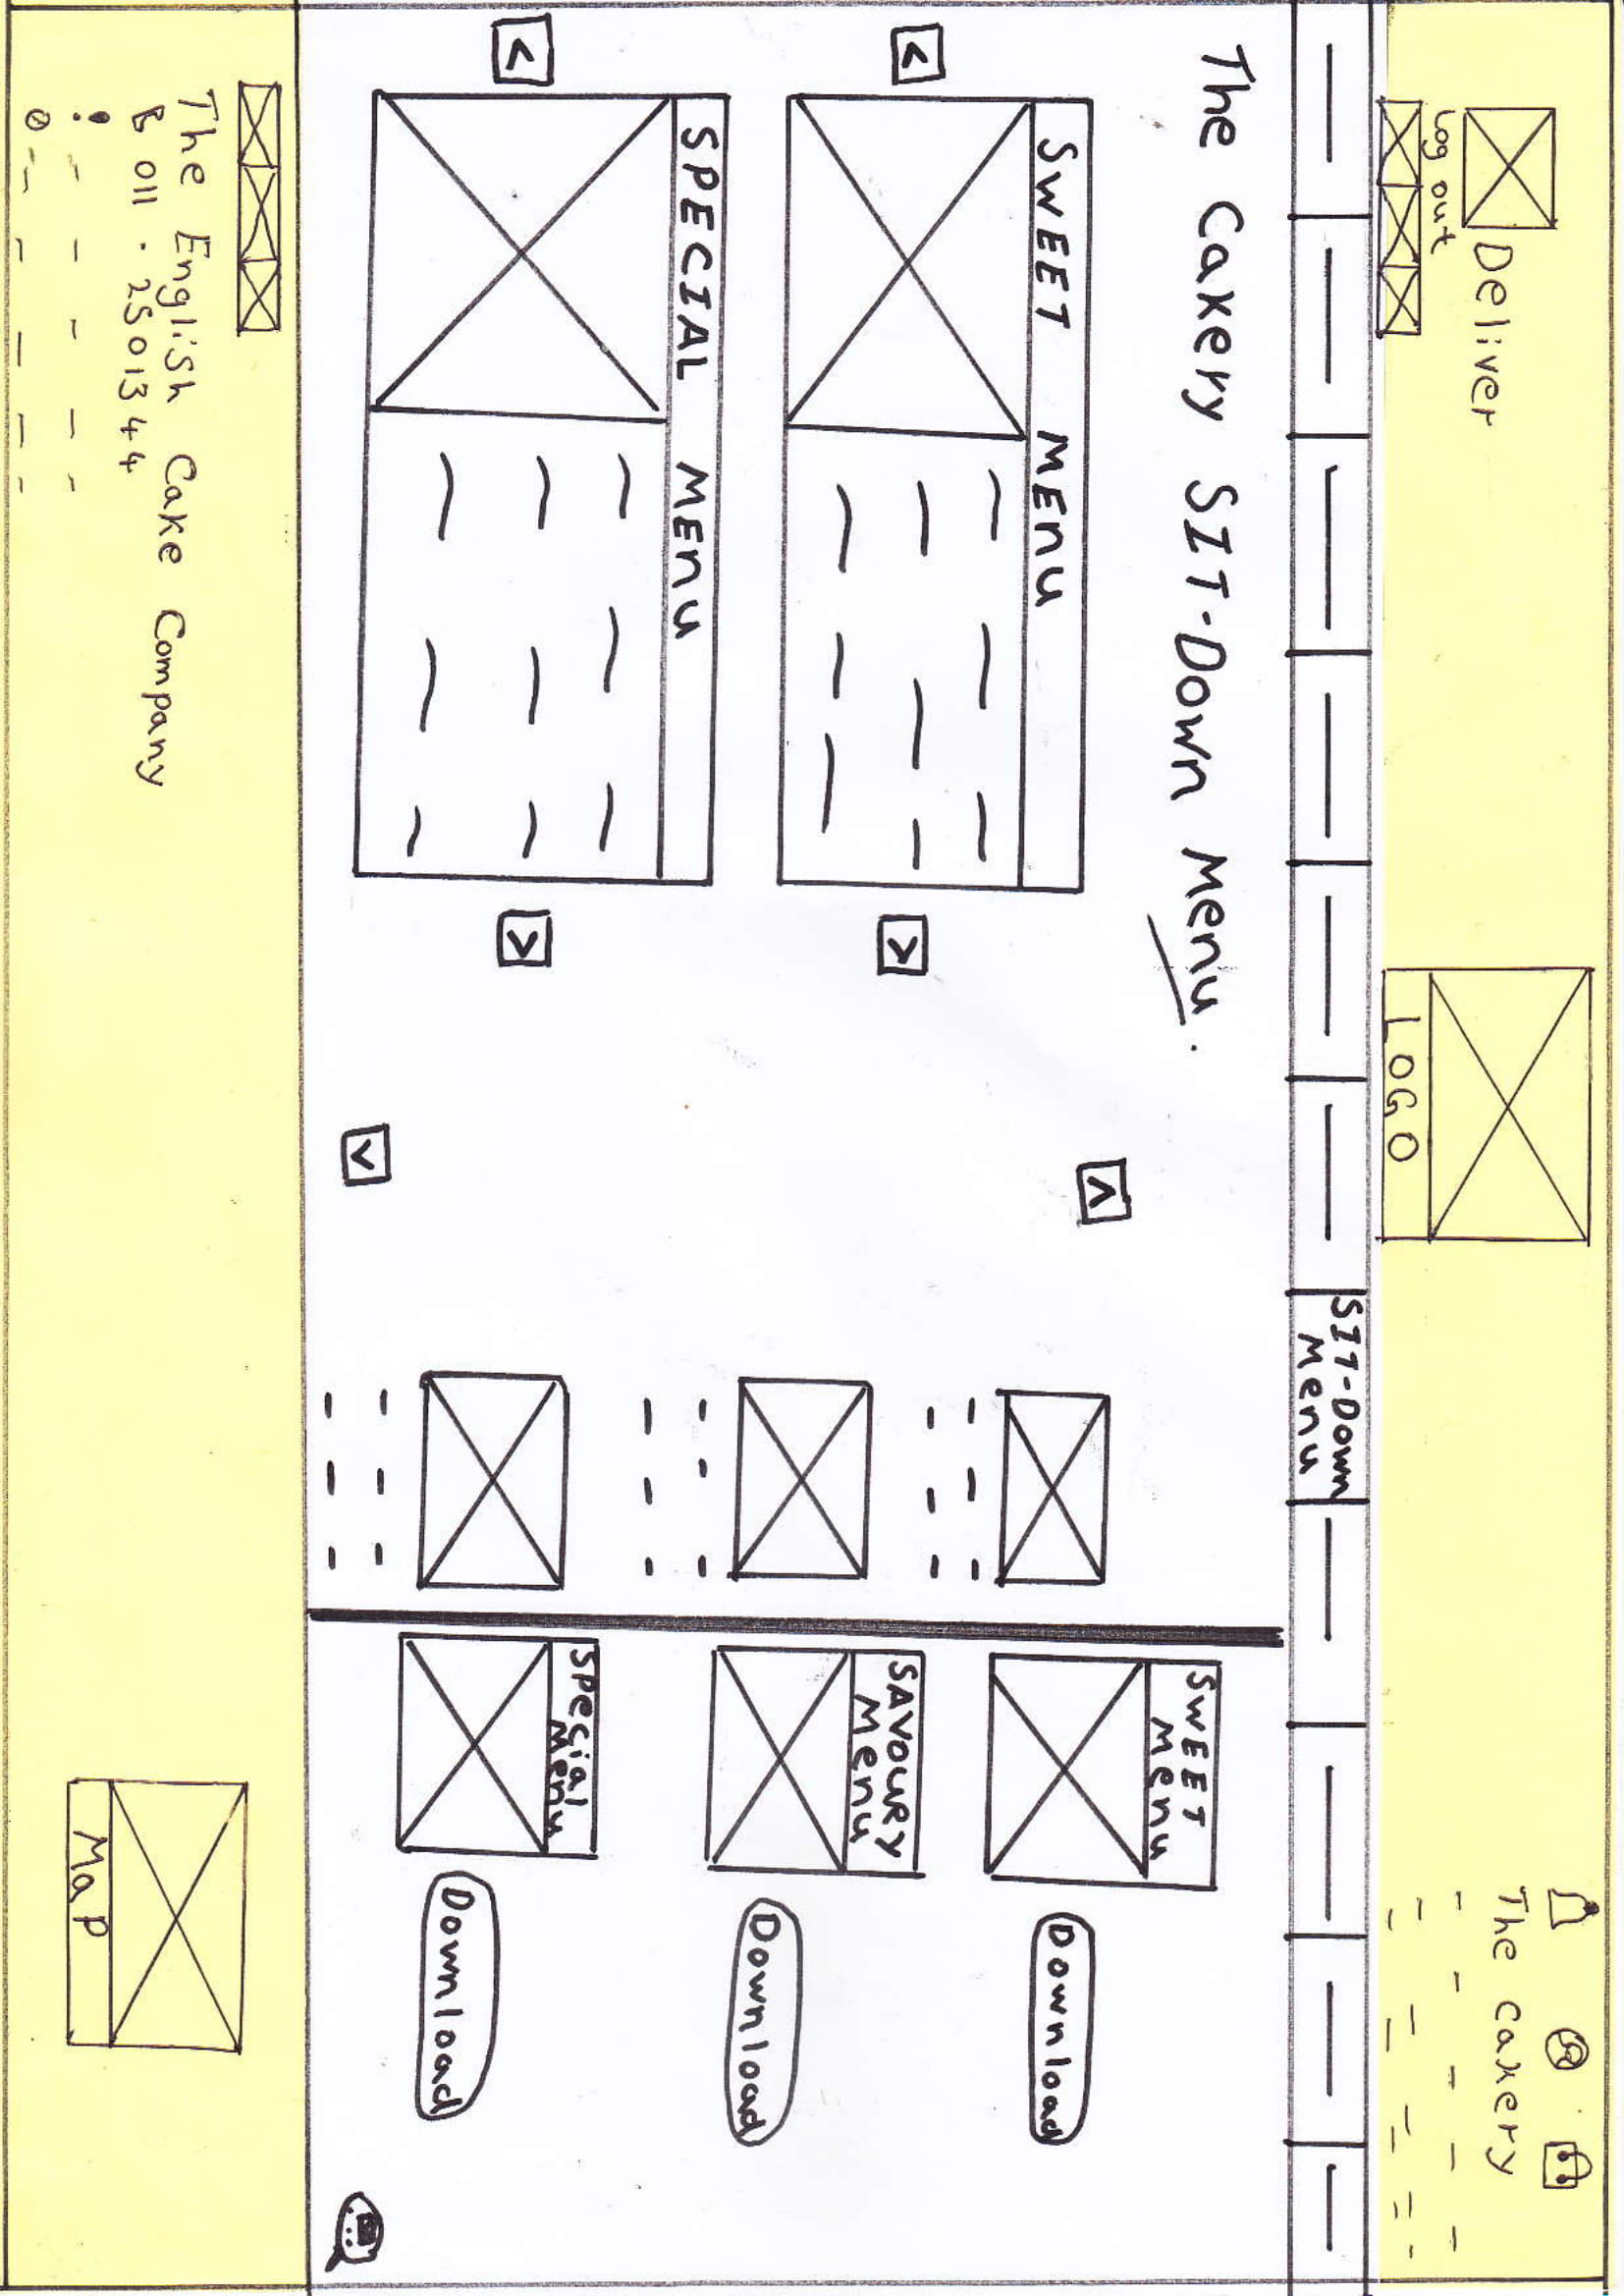 Deliver
Log out
LOGO
The Cakery
SIT-Down
Menu
The Cakery SIT-Down Menu.
SWEET MEnu
SPECIAL MEnu
SWEET
Menu
Download
SAVOURY
Menu
Download
Special
Menu
Download
The English Cake Company
011 - 2501344
MaP